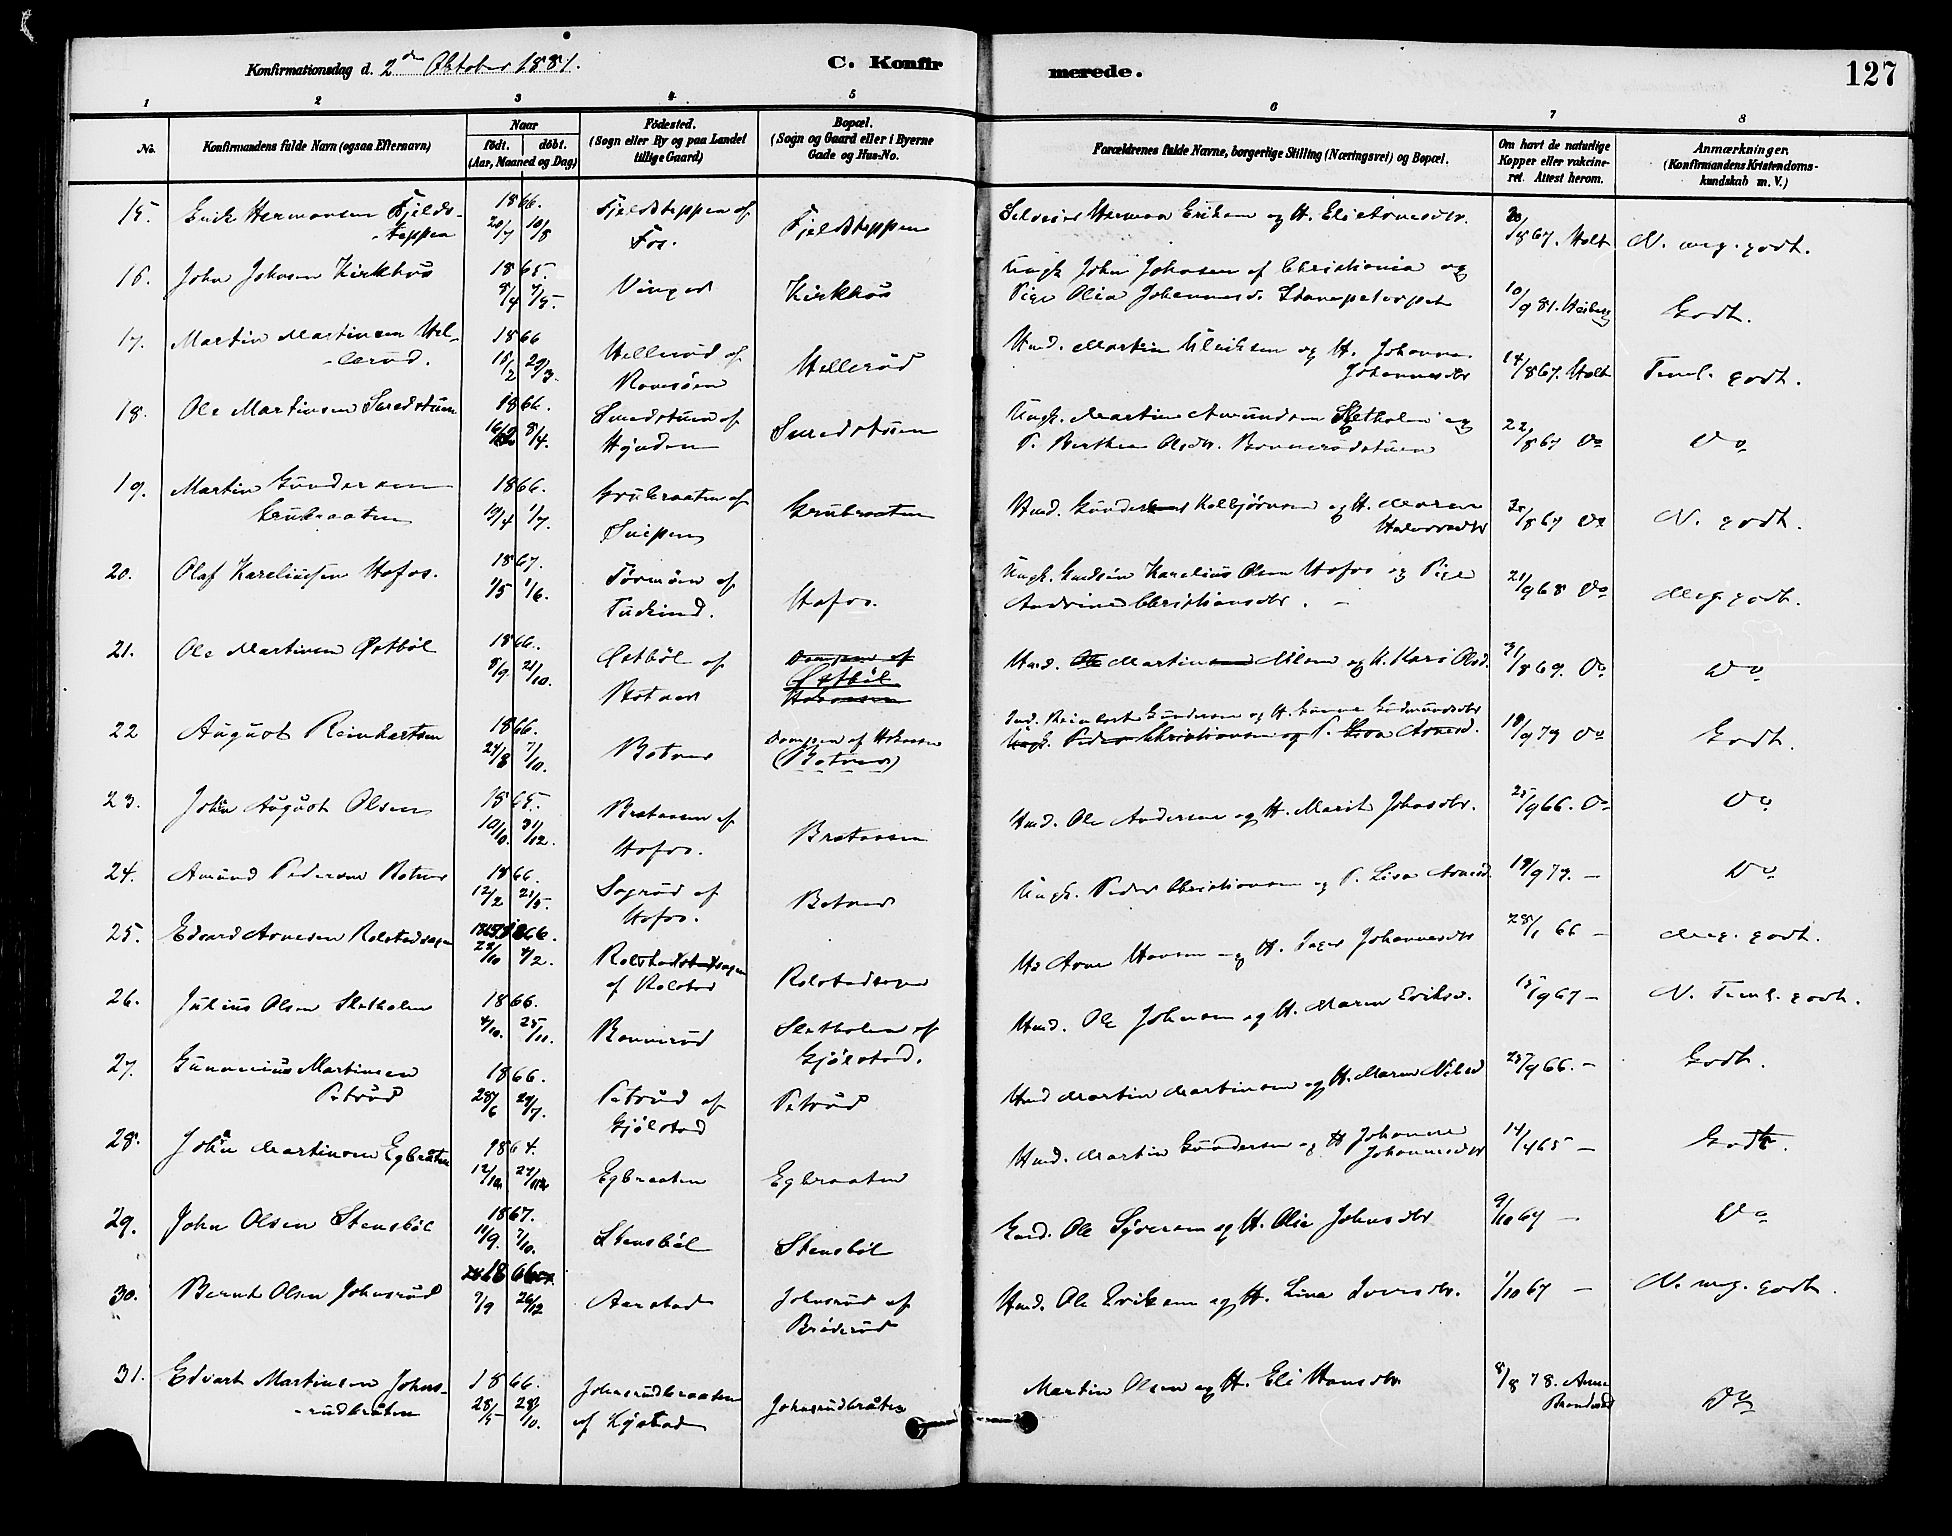 Konfirmationsdag d. 2den Oktober 1881. C. Konfirmerede. 127
1 2 3 4 5 6 7 8
No. Konfirmandens fulde Navn (ogsaa Efternavn) Naar født. døbt. (Aar, Maaned og Dag) Fødested. (Sogn eller By og paa Landet tillige Gaard) Bopæl. (Sogn og Gaard eller i Byerne Gade og Hus-No. Forældrenes fulde Navne, borgerlige Stilling (Næringsvei) og Bopæl. Om havt de naturlige Kopper eller vakcineret. Attest herom. Anmærkninger. (Konfirmandens Kristendomskundskab m. V.)
15. Erik Hermansen Fjeldsteppen 1866. 20/7 10/8 Fjeldsteppen af Fos. Fjeldsteppen Herman Eriksen og H. Eli Arnesdtr. /8 67. Holt N. meg. godt.
16. John Johnsen Kirkhus 1865. 8/4 7/5. Vinger Kirkhus Ungk. John Johnsen af Christiania og Pige Olia Johannesd. 10/9 81. Godt.
17. Martin Martinsen Hellerud. 1866 18/2 29/3. Hellerud af Hellerud Husd. Martin Ulriksen og H. Johanne Johannesdtr 14/8 67. Holt Teml. godt.
18. Ole Martinsen Smedstuen 1866. 16/2 8/4. Smedstuen af Smedstuen Ungk. Martin Amundsen Sletholen og P. Berthea Olsdtr. Bonnerudstuen 22/8 67 Do Do
19. Martin Gundersen Grubraaten 1866. 19/4 1/7. Grubraaten af Grubraaten Husd. Gunder Kolbjørnsen og H. Maren Halvorsdtr /8 67 Do N. godt.
20. Olaf Kareliussen Hofos. 1867. 1/5 1/6. af Hofos. Ungk. Karelius Olsen Hofos og Pige Andrine Christiansdtr. 21/9 68 Do Meg. godt.
21. Ole Martinsen Østbøl 1866. 8/9. 21/10. Østbøl af Botner Dompen af Østbøl Husd. Martin Nilsen og H. Kari Olsd. 31/8 69. Do Do
22 August Reinhartsen 1866. 24/8 7/10. Botner Dompen af (Botner) Reinhart Gundersen og H. Gudmundsdtr Ungk. Peder Christiansen og P. Lisa Arnesd. 19/9 79 Do Godt.
23. Johan August Olsen 1865. 10/10. 31/12. Brataasen af Hofos. Brataasen Husd. Ole Andersen og H. Marit Johnsdtr. 25/9 66. Do Do
24. Amund Pedersen Botner 1866. 12/2 21/5. Sogrud af Hofos. Botner Ungk. Peder Christiansen og P. Lisa Arnesd. 19/9 79. – Do
25. Edvard Arnesen Rolstadsagen 1866. 28/10 4/2. Rolstadsagen af Rolstad Rolstadsagen Arne Hansen og H. Inger Johannesdtr 28/1 66 – Meg. godt.
26. Julius Olsen Sletholen 1866. 4/10. 25/11. Bonnerud Sletholen af Gjølstad. Husd. Ole Johnsen og H. Maren Eriksd. 15/9 67 – N. Teml. godt.
27. Gunnerius Martinsen Petrud 1866. 28/6 29/7. Petrud af Gjølstad Petrud Husd Martin Martinsen og H. Maren Nilsd 25/9 66. – Godt.
28. Johan Martinsen Egbraaten 1864. 12/10. 27/12 Egbraaten Egbraaten Husd. Martin Gundersen og H Johanne Johannesdtr 14/4 65 – Godt.
29. John Olsen Stensbøl 1867. 11/9. 7/10. Stensbøl Stensbøl Gaard. Ole Syversen og H. Olia Johnsdtr 9/10 67 – Do
30. Bernt Olsen Johnsrud 1866 7/9 26/12 Aarstad Johnsrud af Brøderud Husd. Ole Eriksen og H. Lina Iversdtr. 1/10 67 – N. meg. godt.
31. Edvart Martinsen Johnsrudbråten 1866. 28/5 28/10. Johnsrudbraaten af Johnsrudbråten Martin Olsen og H. Eli Hansdtr 8/8 78. Do